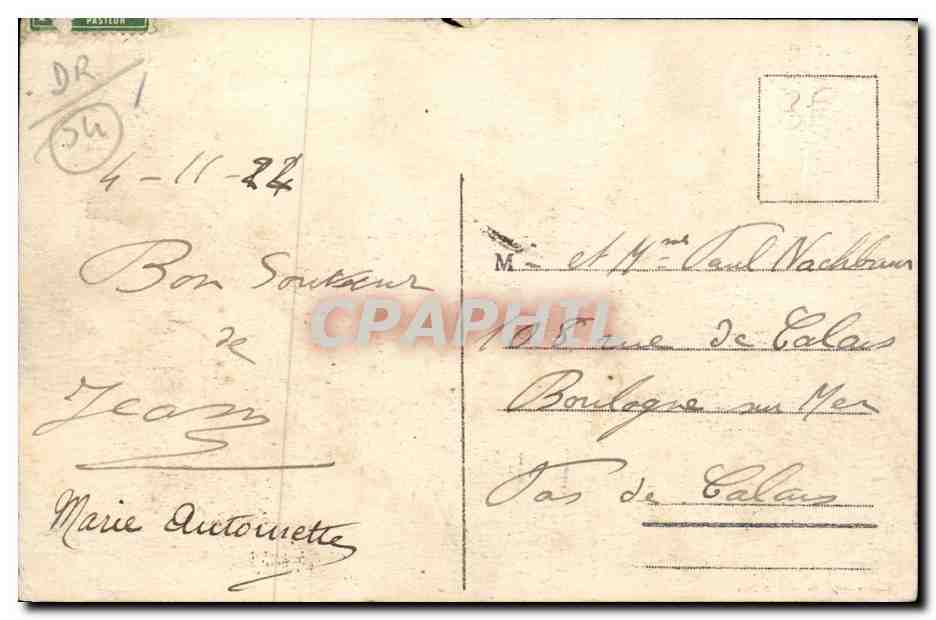 PASTEUR
DR
54
4-11-24
Bon Souvenir
de
Jean
Marie Antoinette
M et Mme Paul Nachbaur
108 rue de Calais
Boulogne sur Mer
Pas de Calais
CPAPHIL